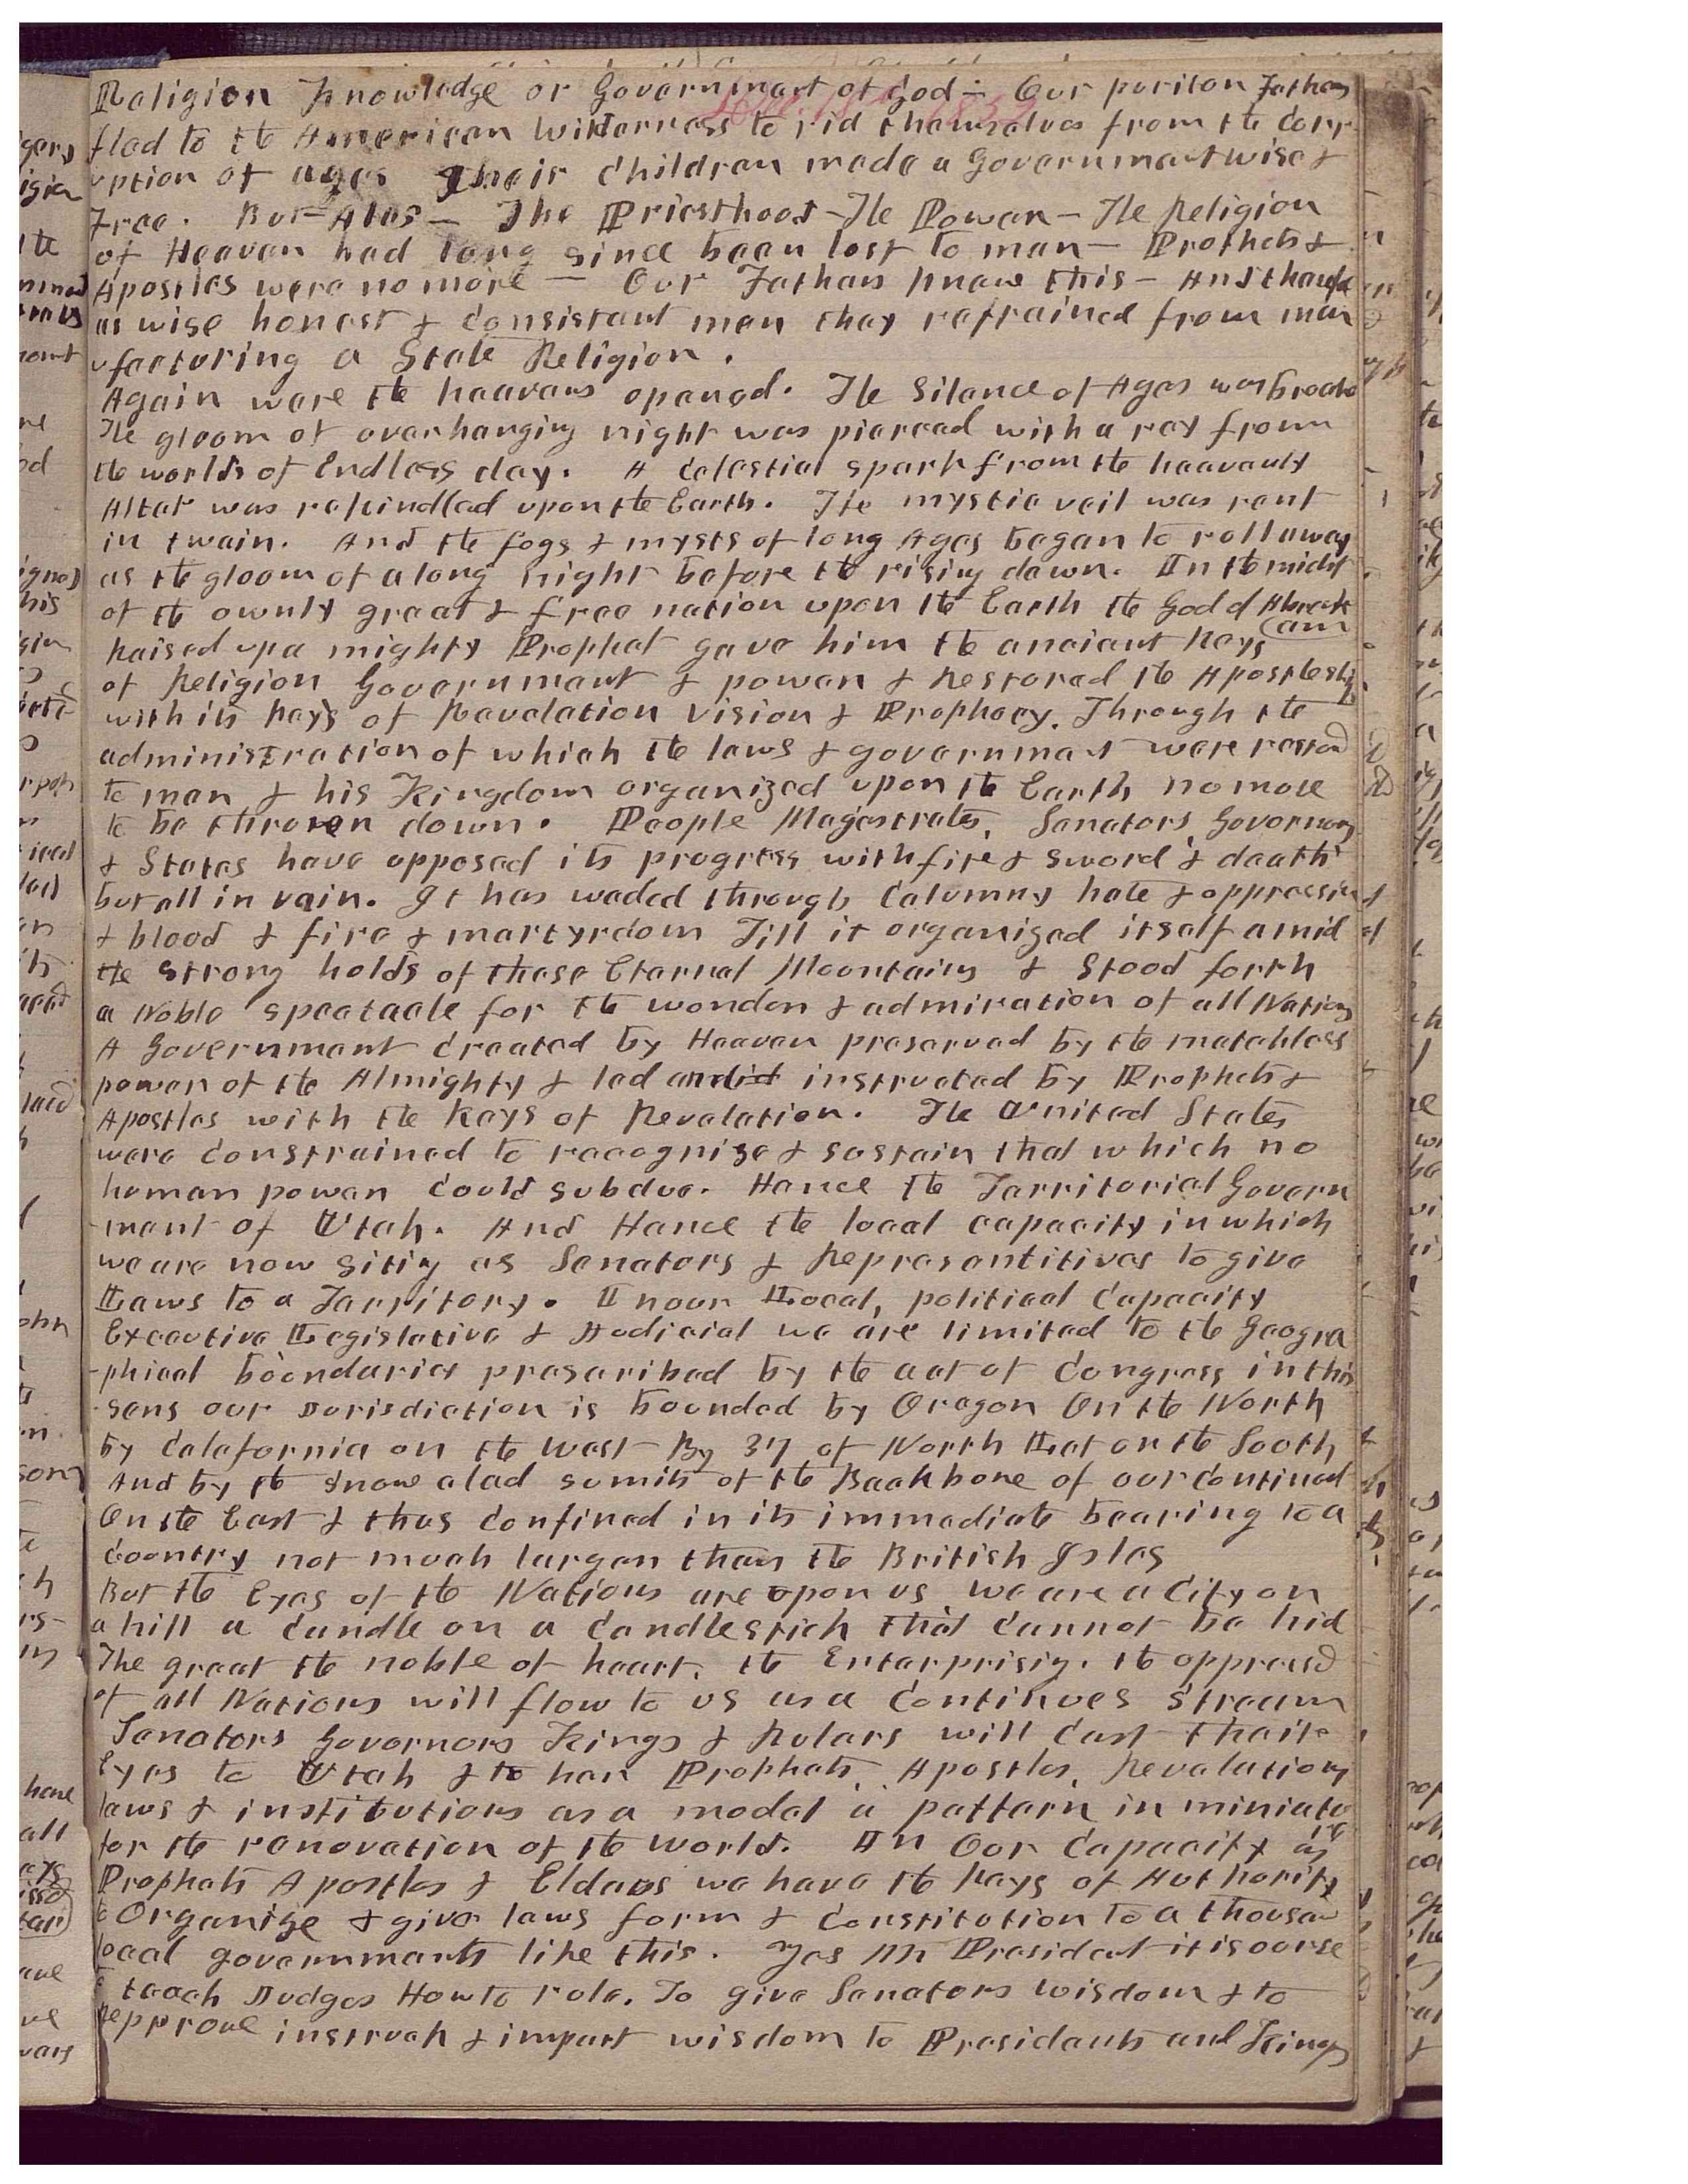 Religion Knowledge or Government of God - Our puriton Fathers
fled to the American Wilderness to rid themselves from the Corr
uption of ages Their Children made a Government wise &
Free. But - Alas - The Priesthood - The Power - The Religion
of Heaven had long since been lost to man - Prophets &
Apostles were no more - Our Fathers knew this - And therefore
as wise honest & Consistant men they refrained from man
ufacturing a State Religion.
Again were the heavens opened. The Silence of Ages was broak
The gloom of overhanging night was pierced with a ray from
the worlds of Endless day. A Celestial spark from the heavenly
Altar was rekindled upon the Earth. The mystic veil was rent
in twain. And the fogs & mysts of long Ages began to roll away
as the gloom of a long night before the rising dawn. In the midst
of the ownly great & free nation upon the Earth the God of Abrah
am
Raised up a mighty Prophet gave him the ancient Keys
of Religion Government & power & Restored the Apostleship
with its Keys of Revelation Vision & Prophecy. Through the
administration of which the laws & government were restord
to man & his Kingdom organized upon the Earth no more
to be thrown down. People Magestrates, Senators, Governors
& States have opposed its progress with fire & sword & death
but all in vain. It has waded through Calumny hate & oppression
& blood & fire & martyrdom Till it organized itself amid
the strong holds of these Eternal Mountains & Stood forth
a Noble spectacle for the wonder & admiration of all Nations
A Government Created by Heaven preserved by the matchless
power of the Almighty & led and instructed by Prophets &
Apostles with the Keys of Revelation. The United States
were Constrained to recognize & sustain that which no
human power Could subdue. Hence the Territorial Govern
-ment of Utah. And Hence the local capacity in which
we are now siting as Senators & Representitives to give
Laws to a Territory. In our Local, political Capacity
Executive Legislative & Judicial we are limited to the Geogra
-phical boundaries prescribed by the act of Congress in this
sens our Jurisdiction is bounded by Oregon On the North
by Calafornia on the West By 37 of North Lat on the South
And by the snow clad sumits of the Backbone of our Continent
On the East & thus Confined in its immediate bearing to a
Country not much larger than the British Isles
But the Eyes of the Nations are upon us we are a City on
a hill a Candle on a Candlestick that Cannot be hid
The great the noble of heart, the Enterprising. the oppressd
of all Nations will flow to us as a Continues Stream
Senators Governors Kings & Rulers will Cast their
Eyes to Utah & to her Prophets, Apostles, Revelations
laws & institutions as a model a pattern in miniatu
re
for the renovation of the world. In Our Capacity as
Prophets Apostles & Elders we have the Keys of Authority
to Organize & give laws form & Constitution to a thousan
local governments like this. Yes Mr President it is ourse
to teach Judges How to rule. To give Senators wisdom & to
Repprove instruch & impart wisdom to Presidents and Kings